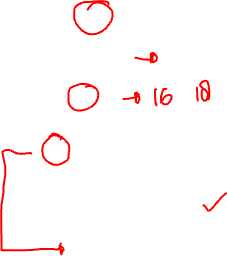 16 18